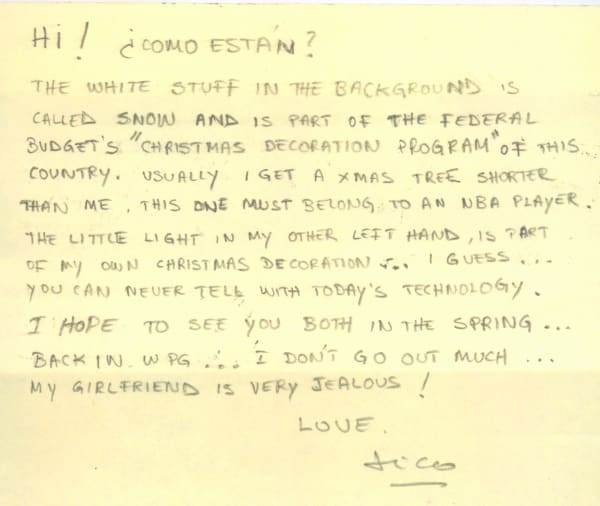 HI! ¿COMO ESTÁN?
THE WHITE STUFF IN THE BACKGROUND IS
CALLED SNOW AND IS PART OF THE FEDERAL
BUDGET'S "CHRISTMAS DECORATION PROGRAM" OF THIS
COUNTRY. USUALLY I GET A XMAS TREE SHORTER
THAN ME, THIS ONE MUST BELONG TO AN NBA PLAYER.
THE LITTLE LIGHT IN MY OTHER LEFT HAND, IS PART
OF MY OWN CHRISTMAS DECORATION ... I GUESS...
YOU CAN NEVER TELL WITH TODAY'S TECHNOLOGY.
I HOPE TO SEE YOU BOTH IN THE SPRING...
BACK IN WPG... I DON'T GO OUT MUCH...
MY GIRLFRIEND IS VERY JEALOUS!
LOVE.